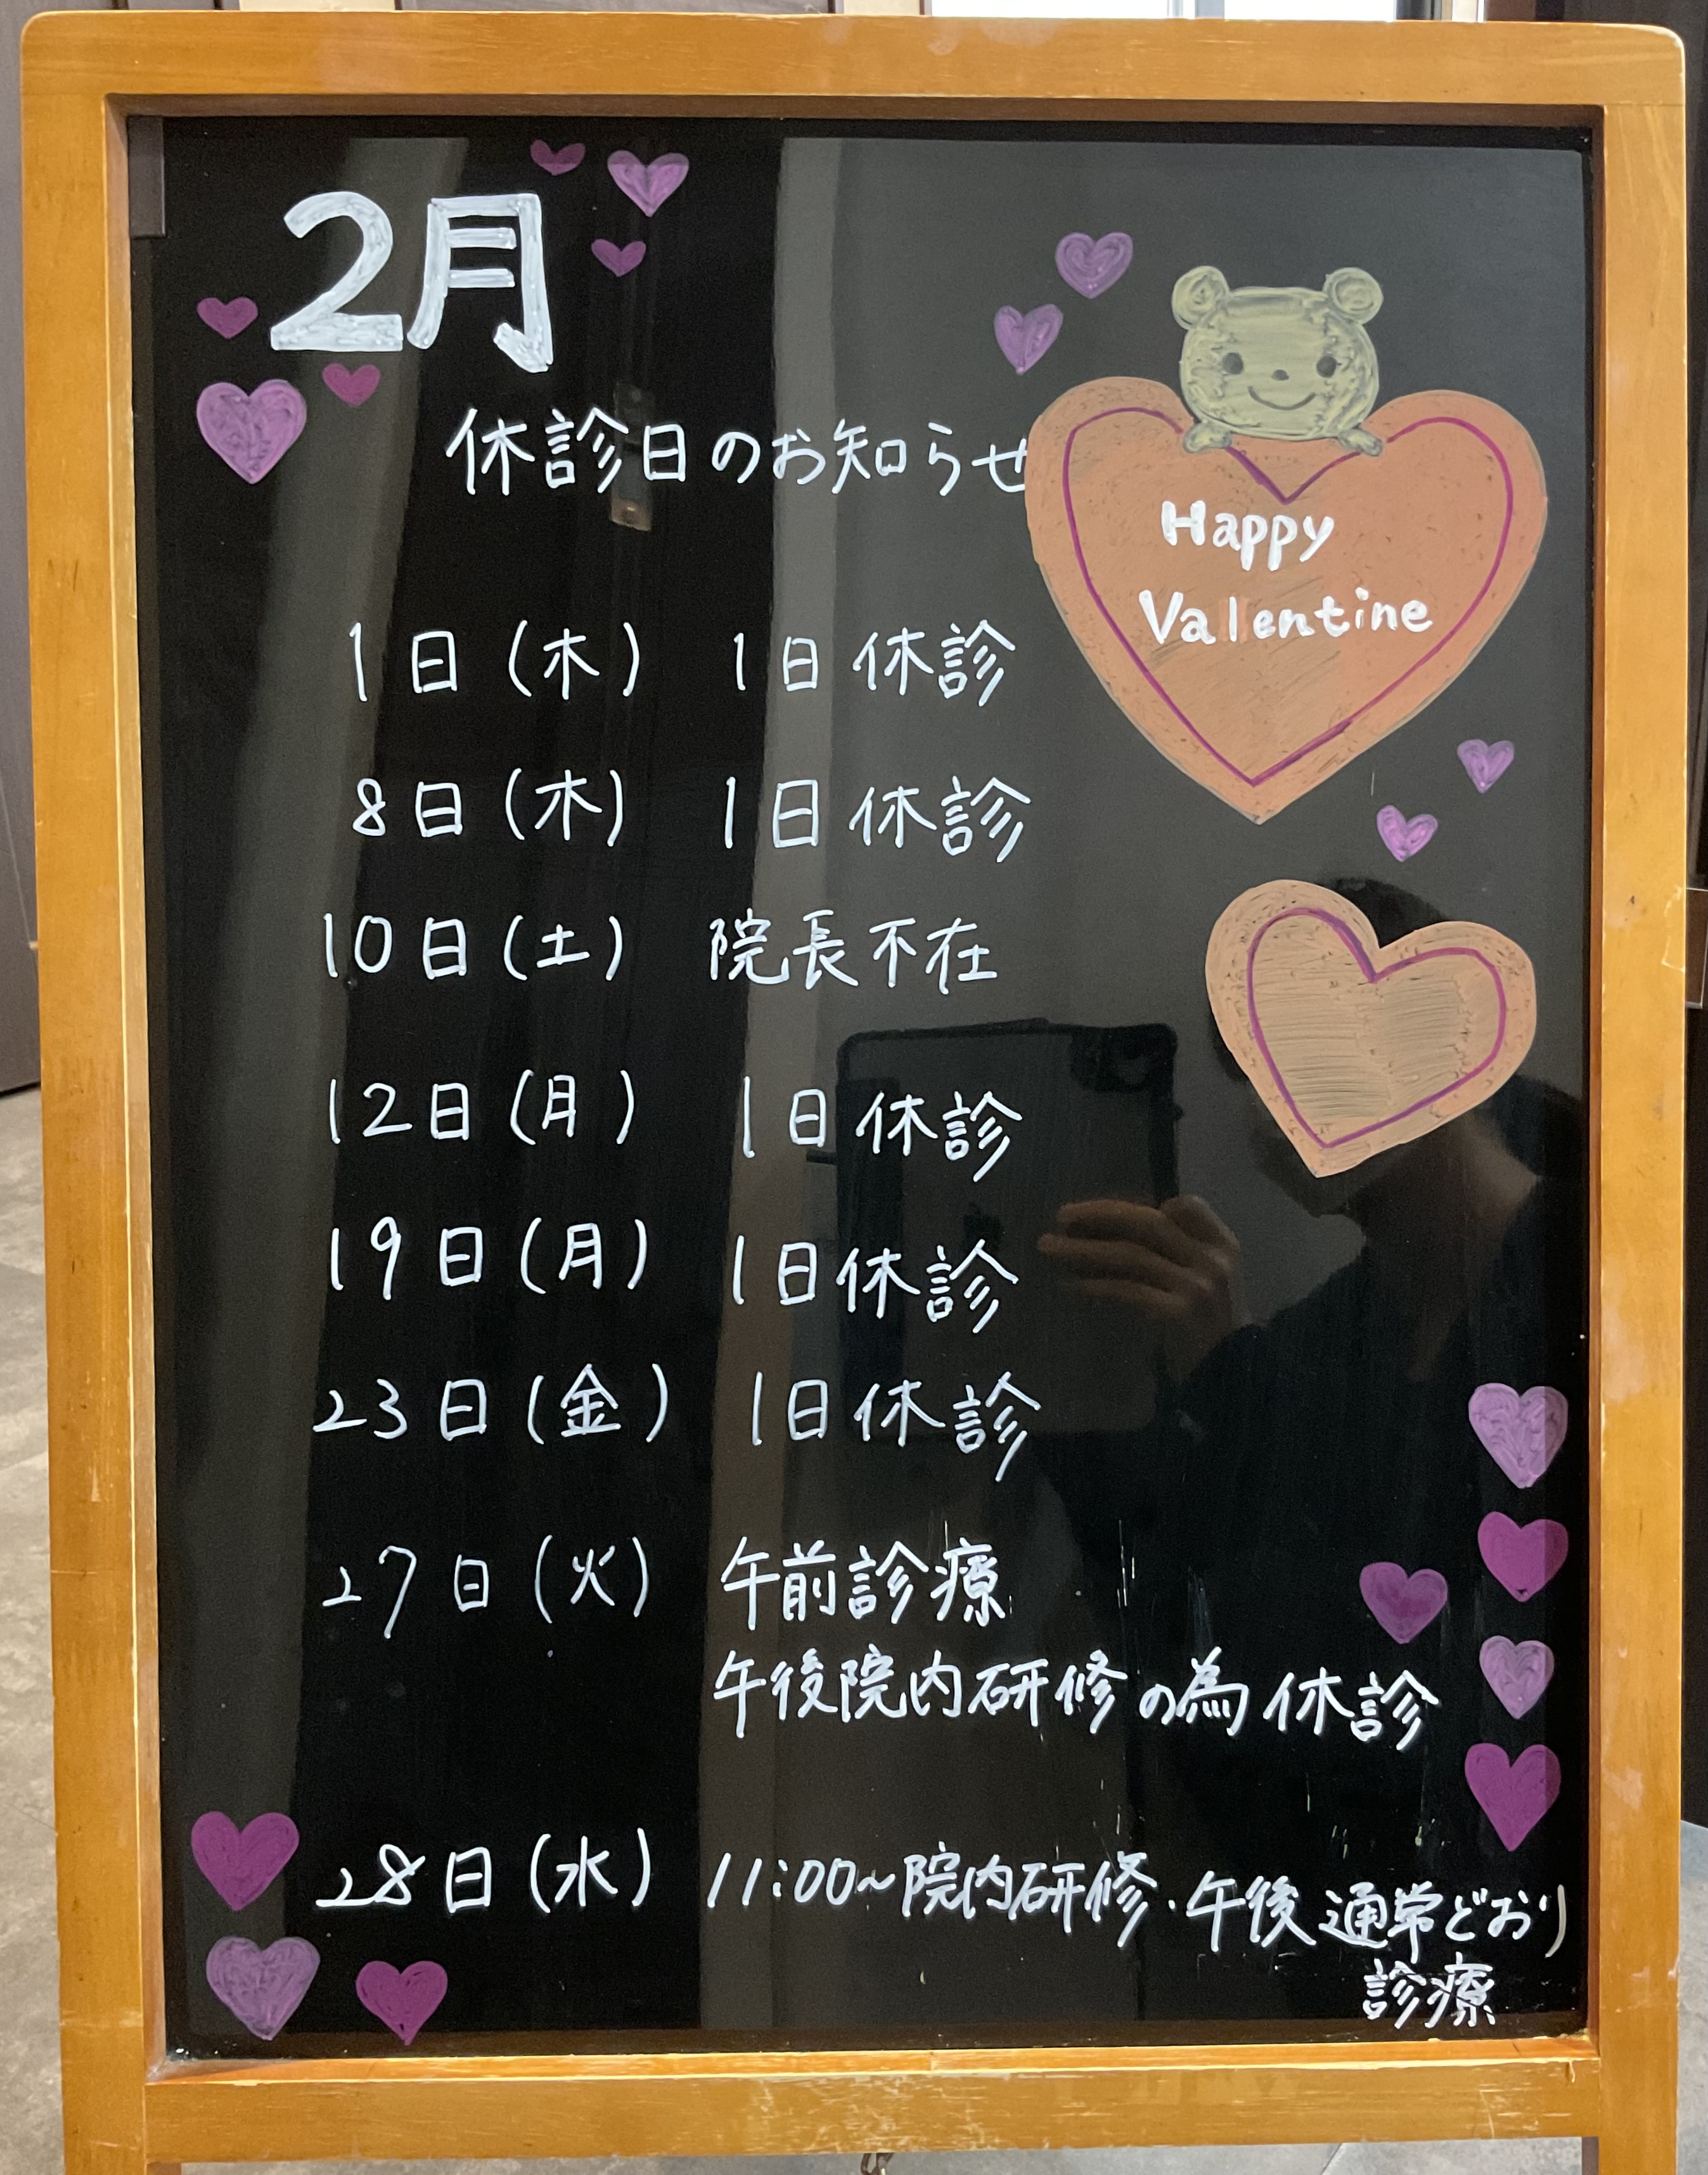 2月
休診日のお知らせ
Happy
Valentine
1日(木) 1日休診
8日(木) 1日休診
10日(土) 院長不在
12日(月) 1日休診
19日(月) 1日休診
23日(金) 1日休診
27日(火) 午前診療
午後院内研修の為休診
28日(水) 11:00~院内研修・午後通常どおり
診療